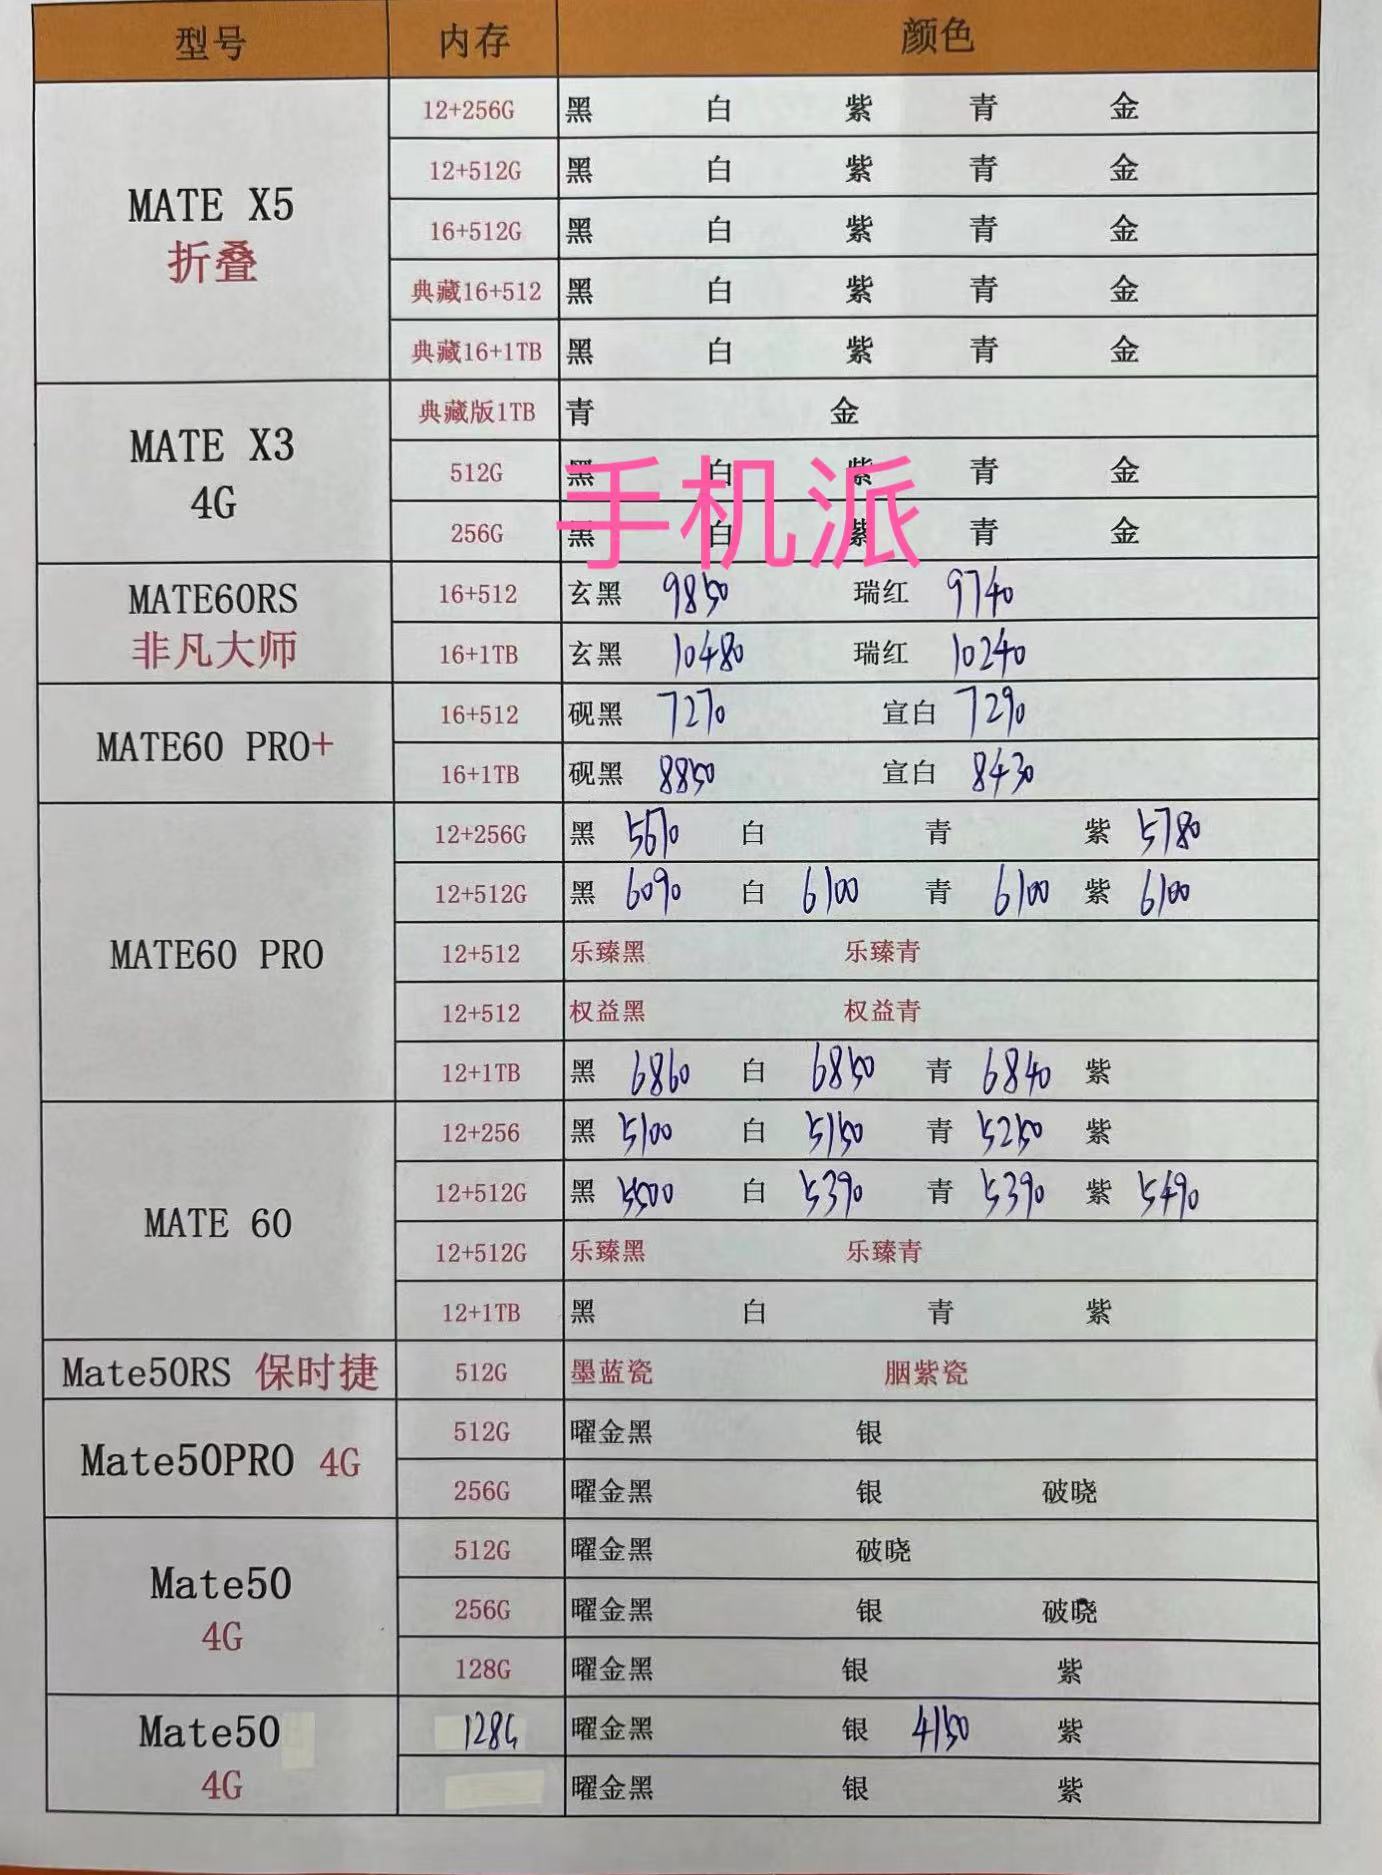 型号 内存 颜色
MATE X5
折叠
12+256G 黑 白 紫 青 金
12+512G 黑 白 紫 青 金
16+512G 黑 白 紫 青 金
典藏16+512 黑 白 紫 青 金
典藏16+1TB 黑 白 紫 青 金
MATE X3
4G
典藏版1TB 青 金
512G 黑 白 紫 青 金
256G 黑 白 紫 青 金
手机派
MATE60RS
非凡大师
16+512 玄黑 9850 瑞红 9740
16+1TB 玄黑 10480 瑞红 10240
MATE60 PRO+
16+512 砚黑 7270 宣白 7290
16+1TB 砚黑 8850 宣白 8430
MATE60 PRO
12+256G 黑 5670 白 青 紫 5780
12+512G 黑 6090 白 6100 青 6100 紫 6100
12+512 乐臻黑 乐臻青
12+512 权益黑 权益青
12+1TB 黑 6860 白 6850 青 6840 紫
MATE 60
12+256 黑 5100 白 5150 青 5250 紫
12+512G 黑 5500 白 5390 青 5390 紫 5490
12+512G 乐臻黑 乐臻青
12+1TB 黑 白 青 紫
Mate50RS 保时捷 512G 墨蓝瓷 胭紫瓷
Mate50PRO 4G
512G 曜金黑 银
256G 曜金黑 银 破晓
Mate50
4G
512G 曜金黑 破晓
256G 曜金黑 银 破晓
128G 曜金黑 银 紫
Mate50
4G
128G 曜金黑 银 4150 紫
曜金黑 银 紫